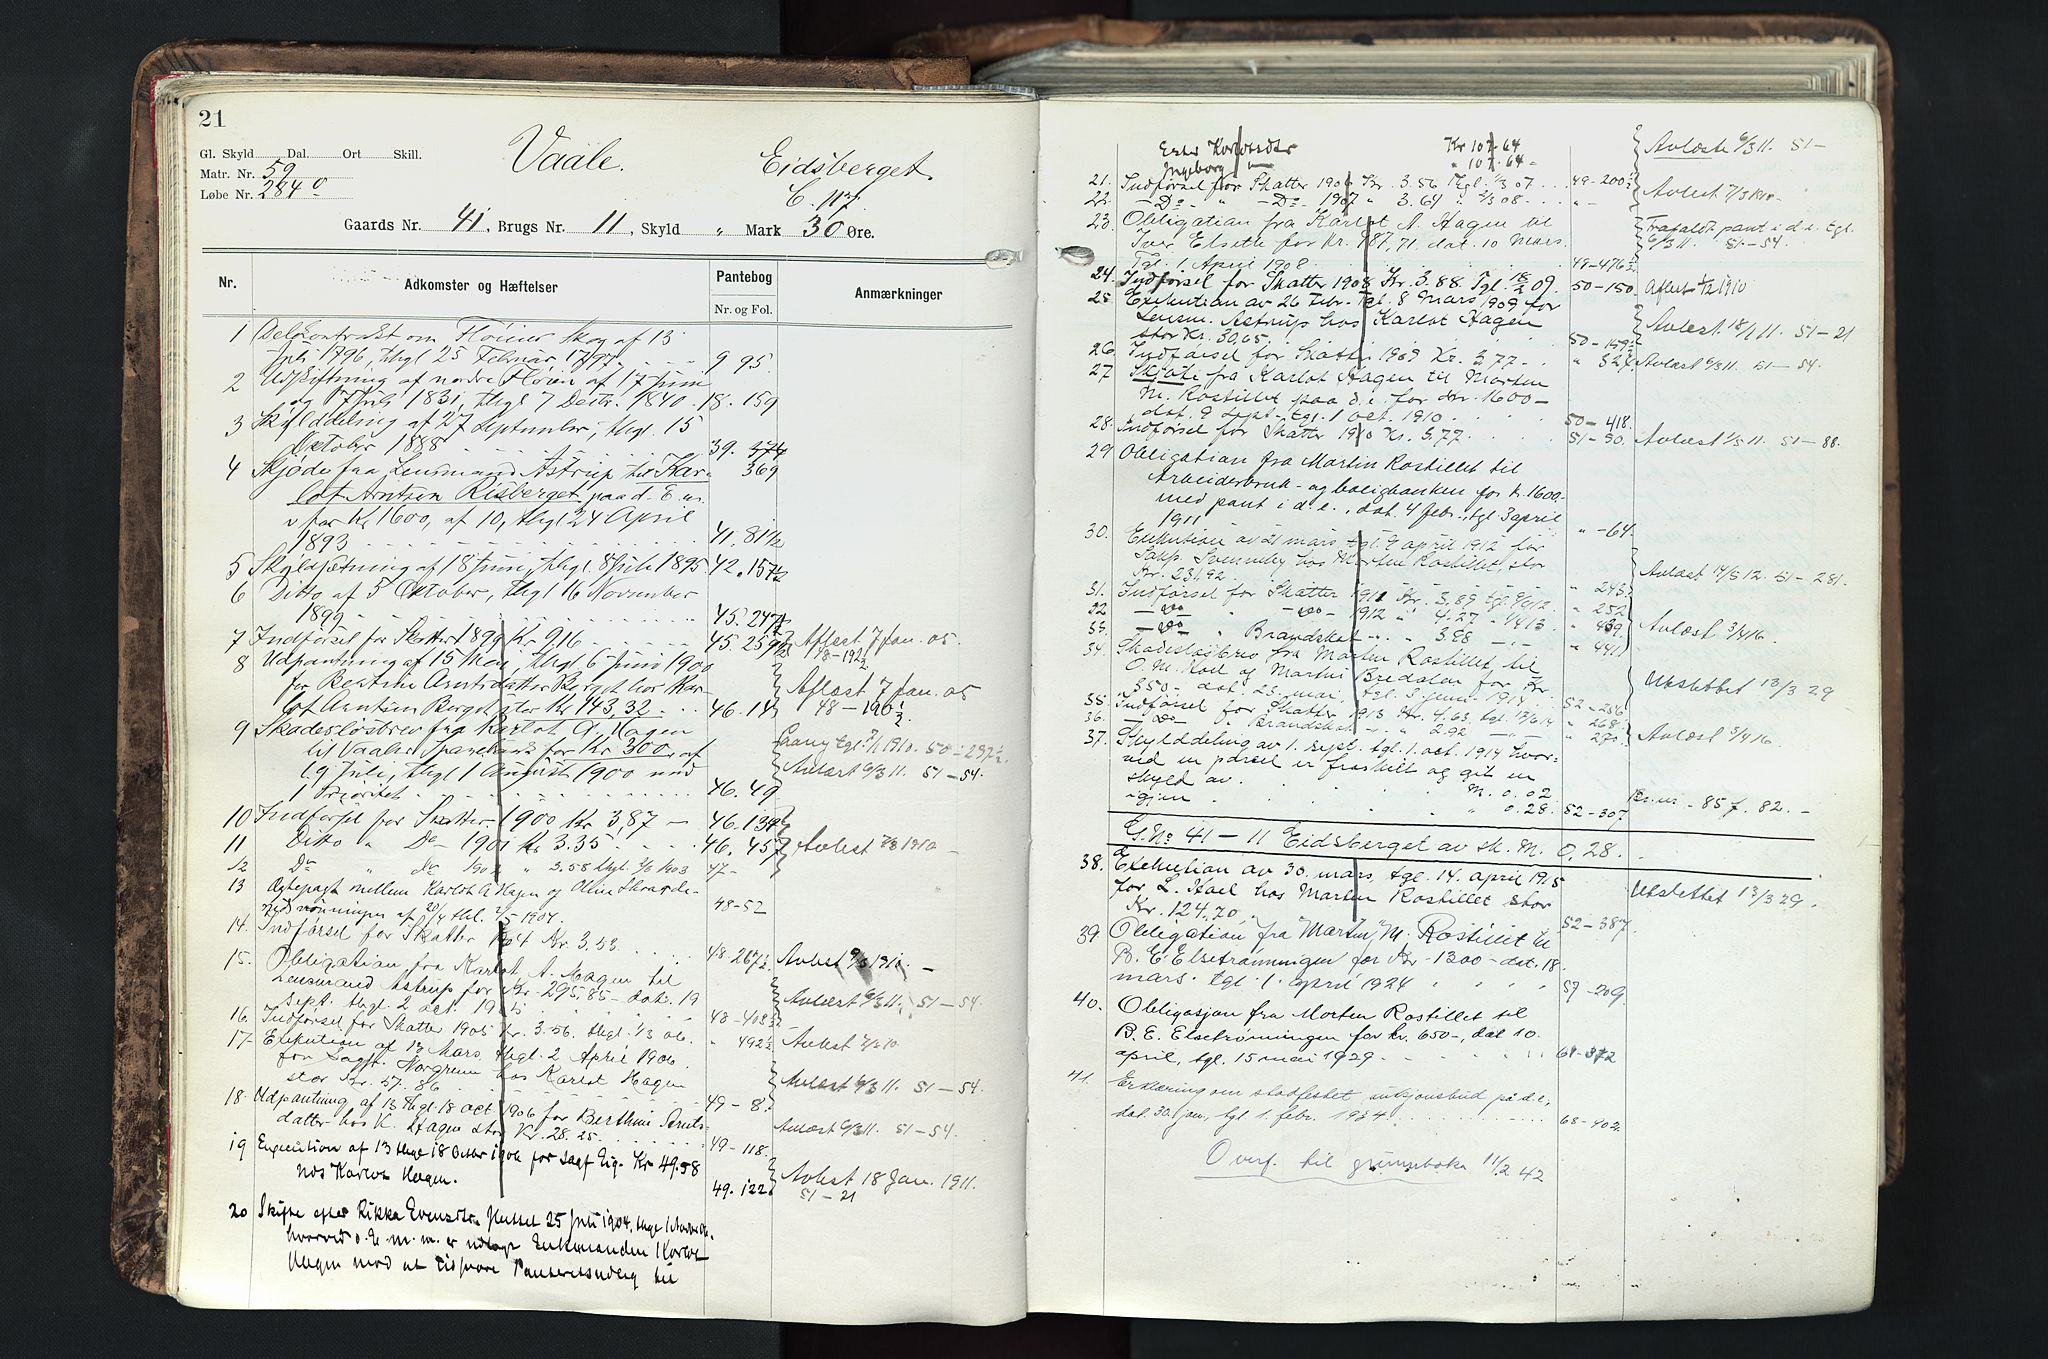 21
Gl. Skyld Dal. Ort Skill.
Matr. Nr. 59
Løbe Nr. 284 o
Vaale. Eidsberget
C. 117.
Gaards Nr. 41, Brugs Nr. 11, Skyld " Mark 30 Øre.
Nr. Adkomster og Hæftelser Pantebog Nr. og Fol. Anmærkninger
1 Delkontrakt om Fløiens skog af 13
Juli 1796, thgl 25 Februar 1797 9 95
2 Udskiftning af nordre Fløien af 17 Juni
og 17 Juli 1831, thgl 7 Decbr. 1840. 18. 159
3 Skylddeling af 27 September, thgl. 15
Oktober 1888 39. 374
4 Skjøde fra Lensmand Astrup til Kar- 369
lot Arntzen Risberget paa d. E. m.
v for Kr 1600, af 10, thgl 24 April
1893 41. 81½
5 Skyldsætning af 18 Juni, thgl. 8 Juli 1895. 42. 157½
6 Ditto af 5 Oktober, thgl 16 November
1899 45. 247½
7 Indførsel for Skatter 1899 Kr 9.16 45. 259½ Aflæst 7 Jan. 05.
48-192½
8 Udpantning af 15 Mai, thgl 6 Juni 1900
for Beathe Arntsdatter Berget hos Kar-
lot Arntsen Berget stor Kr 143,32. 46. 14 Aflæst 7 Jan. 05
48-190½
9 Skadesløsbrev fra Karlot A. Hagen
til Vaaler Sparebank for Kr 300, af
19 Juli, thgl 1 August 1900 med
1 Prioritet 46. 49
tgl. 1910. 50-297½
Avlæst 6/3 11. 51-54.
10 Indførsel for Skatter 1900 Kr 3,87 46. 139
11 Ditto " Do 1901 Kr 3.35 46. 457 Avlæst 7/3 1910 -
12 Do " do 1902 " 3.58 thgl. 3/3 1903 47-
13 Ægtepagt mellem Karlot A Hagen og Oline
af 20/4 thl. 2/5 1904. 48-52
14. Indførsel for Skatter 1904 Kr. 3.53 48. 267½ Avlæst 7/3 1910. -
15. Obligation fra Karlot A. Hagen til
Lensmand Astrup for Kr. 295,85 - dat. 19
Sept. thgl. 2 oct. 1905 48-403½ Avlæst 6/3 11. 51-54.
16. Indførsel for Skatter 1905 Kr. 3.56. thgl. 1/3 06. " 492½ Avlæst 7/3 10
17- Exekution af 13 Mars, thgl. 2 April 1906
for Sagf. Norgrenn hos Karlot Hagen
stor Kr. 57.86 49-8. Avlæst 6/3 11. 51-54.
18. Udpantning af 13 thgl. 18 oct 1906 for Berthine Arnts-
datter hos K. Hagen stor Kr. 28.25 49-118. Avlæst 6/3 11. 51-54.
19 Execution af 13 thgl 18 Octbr 1906 for Sagf Eig. Kr 49.58
hos Karlot Hagen. 49. 122 Avlæst 18 Jan. 1911.
51-21
20 Skifte efter Rikka 25 Juli 1904, thgl
hvorved d. E. m. m. er udlagt Enkemanden Karlot
Hagen mod at tilsvare Panteretsudlæg til
Ester Karlotsdtr Kr 107.64
Ingeborg " " 107.64 -
Avlæste 6/3 11. 51-
21. Indførsel for Skatter 1906 Kr. 3.56 thgl. 1/3 07. 49-200½
22. -Do- " -Do- 1907 " 3.64 " 2/3 08. " - Avlæst 7/3 1910.
23. Obligation fra Karlot A. Hagen til
Iver Elseth for Kr. 187,71, dat. 10 Mars.
Tgl. 1 April 1908 49-476½
Frafaldt pant i d. e. tgl.
6/3 11. 51-54.
24. Indførsel for Skatter 1908 Kr. 3.88. Tgl. 18/2 09. 50-150. Aflæst 1/2 1910
25. Exekution av 26 Febr. tgl. 8 Mars 1909 for
Lensm. Astrup hos Karlot Hagen
stor Kr. 30,65. 50-159½ Avlæst 18/1 11. 51-21
26. Indførsel for Skatter 1909 Kr. 3,77. " 327 Avlæst 6/3 11. 51-54.
27 Skjøte fra Karlot Hagen til Morten
M. Rostillet paa d. e. for Kr. 1600-
dat. 9 Sept. tgl. 1 oct. 1910 50-418.
28. Indførsel for Skatter 1910 Kr. 3.77. 51-50. Avlæst 1/5 11. 51-88.
29 Obligation fra Martin Rostillet til
Arbeiderbruk- og boligbanken for kr. 1600.
med pant i d. e., dat. 4 febr., tgl. 3 april
1911 " -64.
30. Exekution av 21 mars, tgl. 9 april 1912 for
hos Morten Rostillet, stor
Kr. 231,92. " 243. Avlæst 14/5 12. 51-281.
31. Indførsel for Skatter 1911 Kr. 3.89 tgl. 9/9 12. " 252
32 -do- " -do- 1912 " 4.27 - 1/4 13 " 439. Avlæst 3/4 16.
33. -do- " Brandskat " 3.98 " 441
34. Skadesløsbrev fra Morten Rostillet til
O. M. Hoel og Martin Bredalen for Kr.
350- dat. 23. mai, tgl. 3 juni 1914 52-256 Utslettet 13/3 29
35. Indførsel for Skatter 1913 Kr. 4.63, tgl. 13/6 14 " 268.
36. -do- " Brandskat " 2.92 " 270. Avlæst 3/4 16.
37. Skylddeling av 1. sept. tgl. 1. oct. 1914 hvor-
ved en parsel er fraskilt og git en
skyld av M. 0.02
igjen " 0.28. 52-307 Br.nr. - 85 f. 82. -
G.No 41-11 Eidsberget av sk. M. 0,28.
38. Exekution av 30. mars, tgl. 14. april 1915
for L. Hoel hos Morten Rostillet stor
Kr. 124,70 52-387 Utslettet 13/3 29.
39 Obligation fra Martin M. Rostillet til
B. E. Elsetrønningen for Kr. 1300- dat. 18.
mars. tgl. 1. april 1924 57-209.
40. Obligasjon fra Morten Rostillet til
B. E. Elsetrønningen for kr. 650-, dat. 10.
april, tgl. 15 mai 1929. 61-372
41. Erklæring om stadfestet auksjonsbud på d.e.,
dat. 30. jan., tgl. 1. febr. 1934 68-402.
Overf. til grunnboka 11/2 42